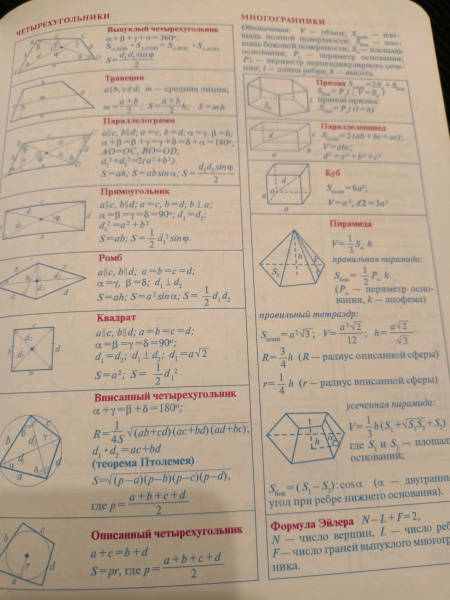 ЧЕТЫРЕХУГОЛЬНИКИ
Выпуклый четырехугольник
α+β+γ+α=360°.
S=d₁d₂sinφ/2
Трапеция
a∥b, c∦d; m — средняя линия;
m=a+b/2; S=a+b/2 h; S=mh
Параллелограмм
a∥c, b∥d; a=c, b=d; α=γ, β=δ;
α+β=β+γ=γ+δ=δ+α=180°,
AO=OC, BO=OD;
d₁²+d₂²=2(a²+b²).
S=ah; S=absinα; S=d₁d₂sinφ/2
Прямоугольник
a∥c, b∥d; a=c, b=d; b⊥a;
α=β=γ=δ=90°, d₁=d₂;
d₁²=a²+b²
S=ab; S=1/2 d₁²sinφ.
Ромб
a∥c, b∥d; a=b=c=d;
α=γ, β=δ; d₁⊥d₂
S=ah; S=a²sinα; S=1/2 d₁d₂
Квадрат
a∥c, b∥d; a=b=c=d;
α=β=γ=δ=90°;
d₁=d₂, d₁⊥d₂; d₁=a√2
S=a²; S=1/2 d₁²
Вписанный четырехугольник
α+γ=β+δ=180°;
R=1/4S √(ab+cd)(ac+bd)(ad+bc);
d₁•d₂=ac+bd
(теорема Птолемея)
S=√(p−a)(p−b)(p−c)(p−d),
где p=a+b+c+d/2
Описанный четырехугольник
a+c=b+d
S=pr, где p=a+b+c+d/2
МНОГОГРАННИКИ
Обозначения: V — объем; Sполн — пло-
щадь полной поверхности, Sбок — пло-
щадь боковой поверхности, Sо — площадь
основания; Pо — периметр основания;
P⊥ — периметр перпендикулярного сече-
ния; l — длина ребра; h — высота.
Призма Sполн=2Sо+Sбок
Sбок=P⊥l; V=Sоh
прямая призма:
Sбок=Pоl (l=h)
Параллелепипед
Sполн=2(ab+bc+ac);
V=abc;
d²=a²+b²+c²
Куб
Sполн=6a²;
V=a³, d2=3a²
Пирамида
V=1/3 Sо h
правильная пирамида:
Sбок=1/2 Pо k
(Pо — периметр осно-
вания, k — апофема)
правильный тетраэдр:
Sполн=a²√3; V=a³√2/12; h=a√2/√3
R=3/4 h (R — радиус описанной сферы)
r=1/4 h (r — радиус вписанной сферы)
усеченная пирамида:
V=1/3 h(S₁+√S₁S₂+S₂)
где S₁ и S₂ — площади
оснований;
Sбок=(S₁−S₂):cosα (α — двугранный
угол при ребре нижнего основания).
Формула Эйлера N−L+F=2,
N — число вершин, L — число ребер,
F — число граней выпуклого многогран-
ника.